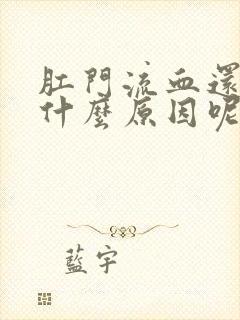 肛門流血還
什麼原因呢
藍宇